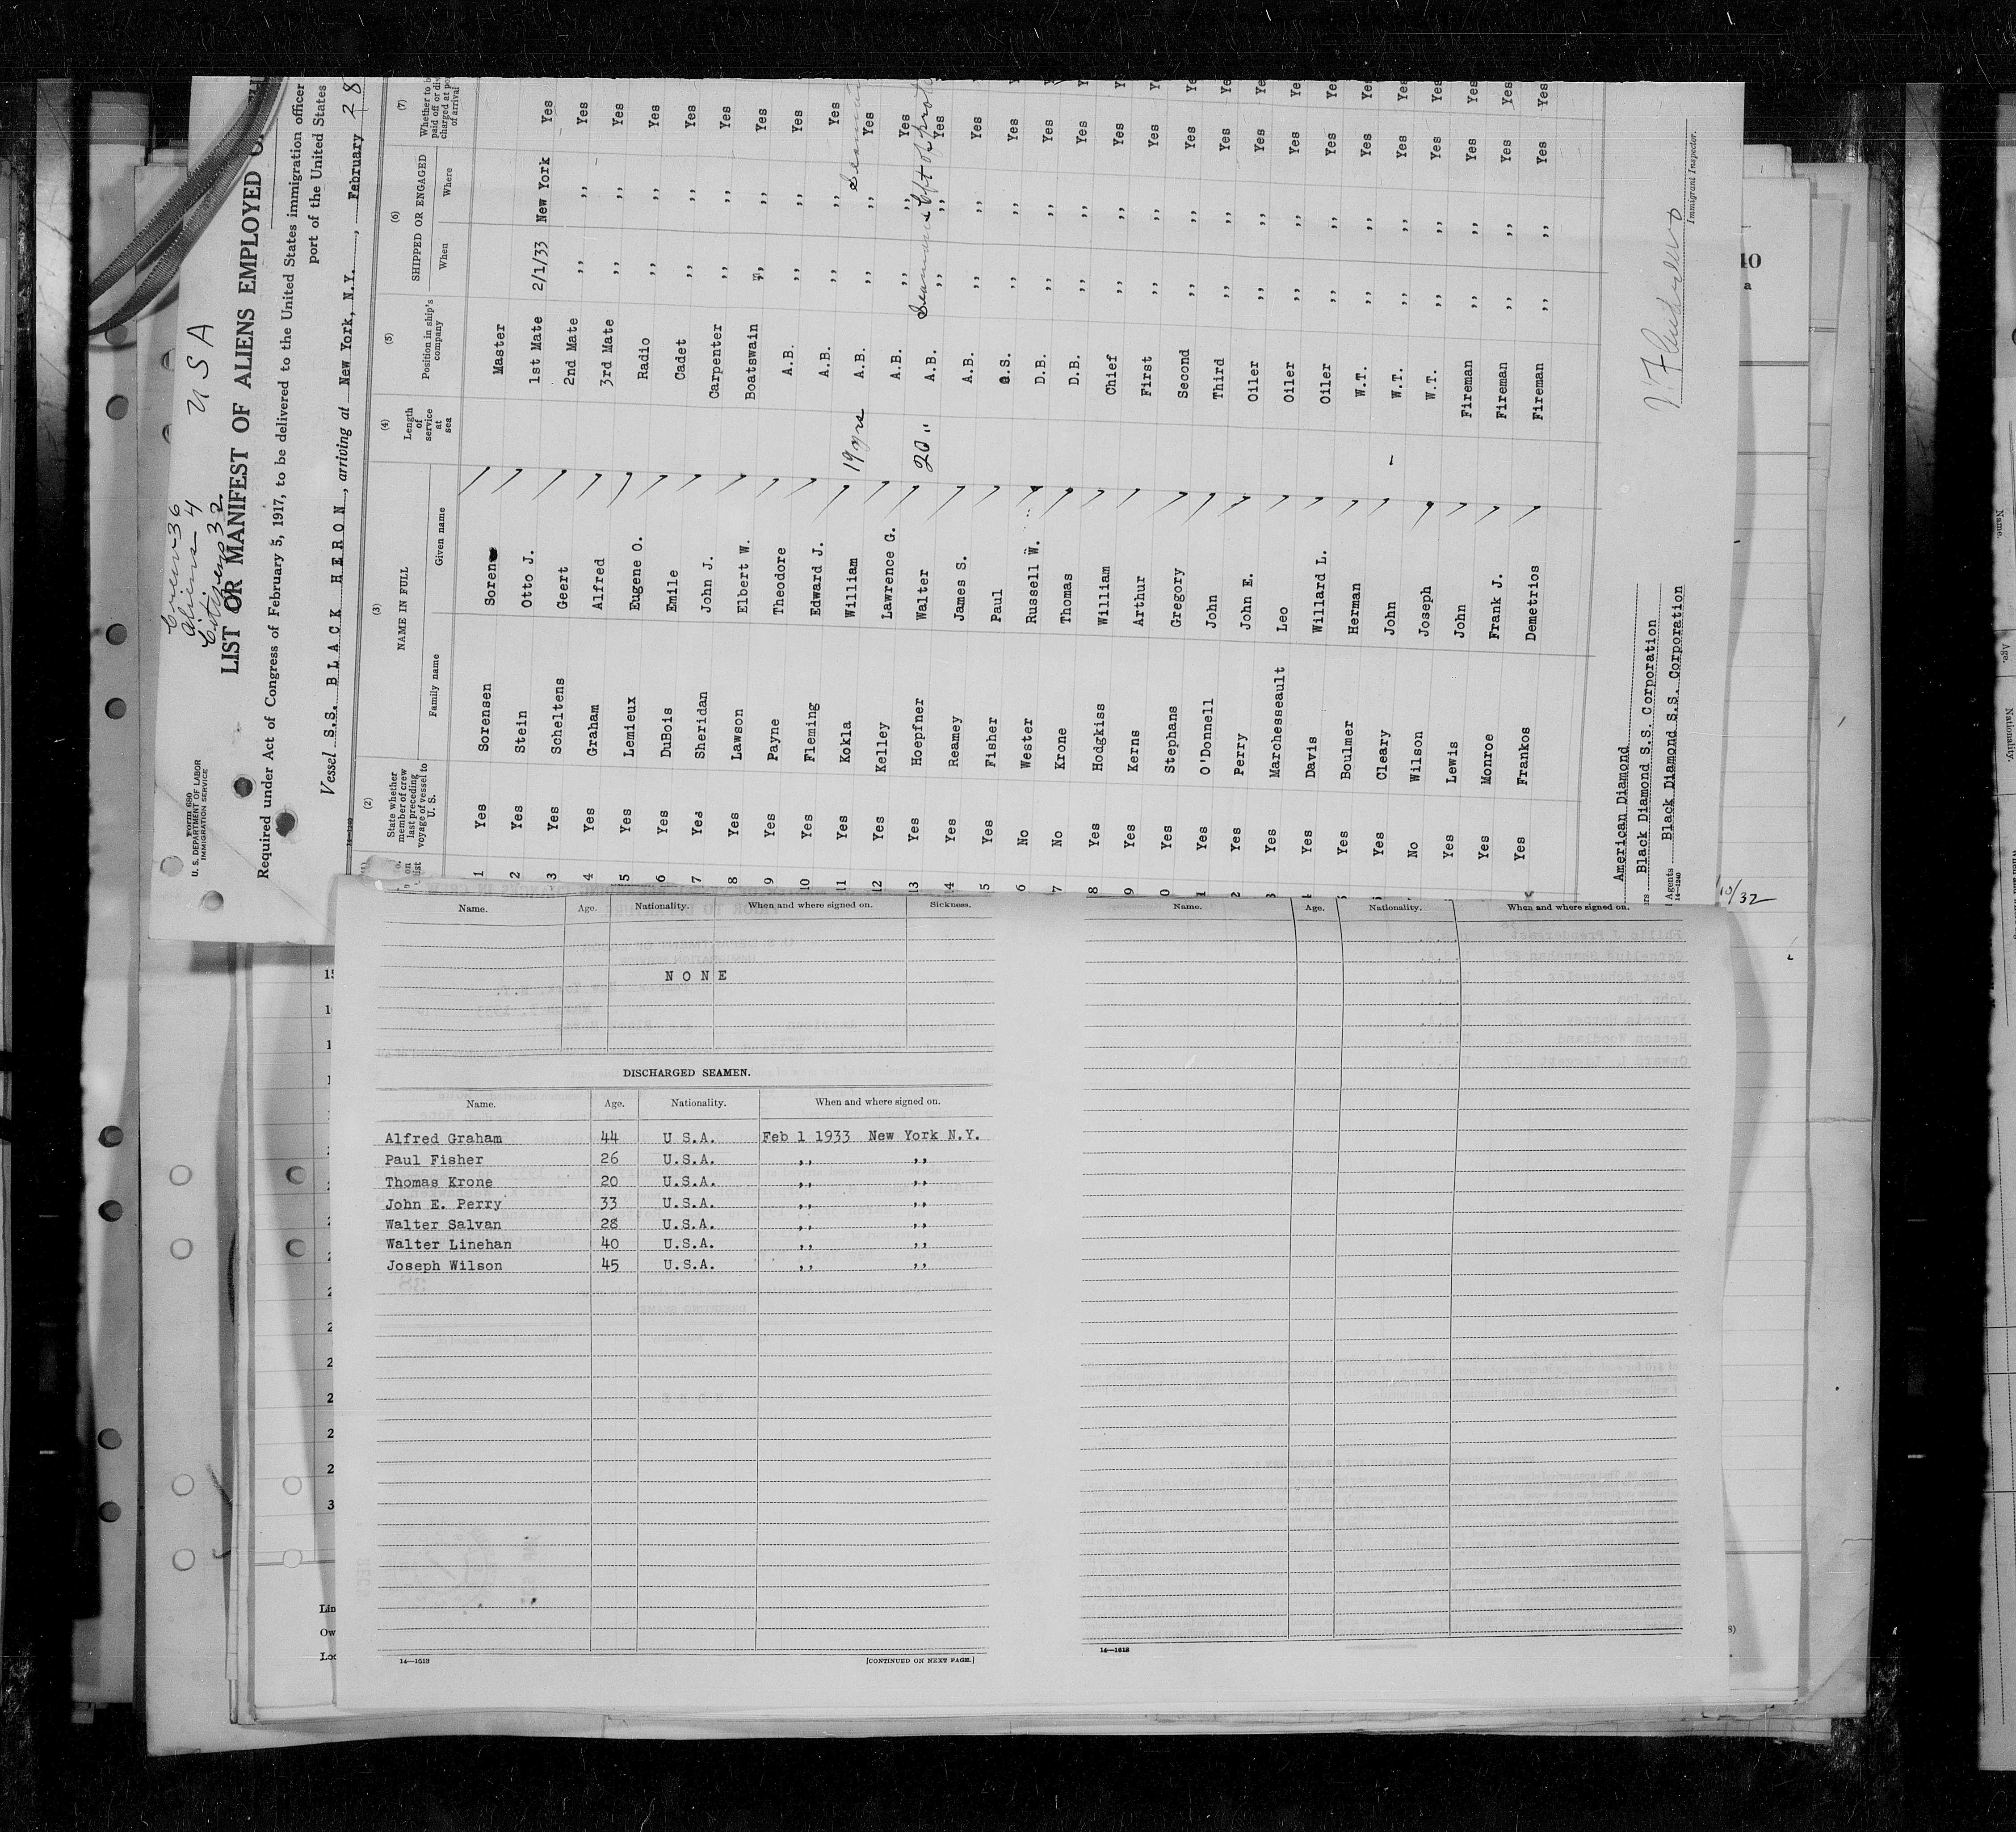 Crew 36
Aliens 4
Citizens 32
U S A
Form 680
U. S. DEPARTMENT OF LABOR
IMMIGRATION SERVICE
LIST OR MANIFEST OF ALIENS EMPLOYED O
Required under Act of Congress of February 5, 1917, to be delivered to the United States immigration officer
port of the United States
Vessel S.S. BLACK HERON, arriving at New York, N.Y., February 28
14-1240
(2) (3) (4) (5) (6) (7)
State whether member of crew last preceding voyage of vessel to U. S. NAME IN FULL Length of service at sea Position in ship's company SHIPPED OR ENGAGED
Family name Given name When Where
1 Yes Sorensen Soren Master
2 Yes Stein Otto J. 1st Mate 2/1/33 New York Yes
3 Yes Scheltens Geert 2nd Mate ,, ,, Yes
4 Yes Graham Alfred 3rd Mate ,, ,, Yes
5 Yes Lemieux Eugene O. Radio ,, ,, Yes
6 Yes DuBois Emile Cadet ,, ,, Yes
7 Yes Sheridan John J. Carpenter ,, ,, Yes
8 Yes Lawson Elbert W. Boatswain ,, ,, Yes
9 Yes Payne Theodore A.B. ,, ,, Yes
10 Yes Fleming Edward J. A.B. ,, ,, Yes
11 Yes Kokla William 19 yrs A.B. ,, ,, Yes
12 Yes Kelley Lawrence G. A.B. ,, ,, Yes
13 Yes Hoepfner Walter 20 " A.B. ,, ,, Yes
14 Yes Reamey James S. A.B. ,, ,, Yes
5 Yes Fisher Paul O.S. ,, ,, Yes
6 No Wester Russell W. D.B. ,, ,, Yes
7 No Krone Thomas D.B. ,, ,, Yes
8 Yes Hodgkiss William Chief ,, ,, Yes
9 Yes Kerns Arthur First ,, ,, Yes
0 Yes Stephans Gregory Second ,, ,, Yes
1 Yes O'Donnell John Third ,, ,, Yes
2 Yes Perry John E. Oiler ,, ,, Yes
3 Yes Marchesseault Leo Oiler ,, ,, Yes
Yes Davis Willard L. Oiler ,, ,, Yes
Yes Boulmer Herman W.T. ,, ,, Yes
Yes Cleary John W.T. ,, ,, Yes
No Wilson Joseph W.T. ,, ,, Yes
Yes Lewis John Fireman ,, ,, Yes
Yes Monroe Frank J. Fireman ,, ,, Yes
Yes Frankos Demetrios Fireman ,, ,, Yes
American Diamond
Black Diamond S.S. Corporation
Agents Black Diamond S.S. Corporation
14-1240
Immigrant Inspector.
10/32
Name. Age. Nationality. When and where signed on. Sickness.
NONE
DISCHARGED SEAMEN.
Name. Age. Nationality. When and where signed on.
Alfred Graham 44 U S.A. Feb 1 1933 New York N.Y.
Paul Fisher 26 U.S.A. ,, ,,
Thomas Krone 20 U.S.A. ,, ,,
John E. Perry 33 U.S.A. ,, ,,
Walter Salvan 28 U.S.A. ,, ,,
Walter Linehan 40 U.S.A. ,, ,,
Joseph Wilson 45 U.S.A. ,, ,,
14—1613
[CONTINUED ON NEXT PAGE.]
Name. Age. Nationality. When and where signed on.
14—1613